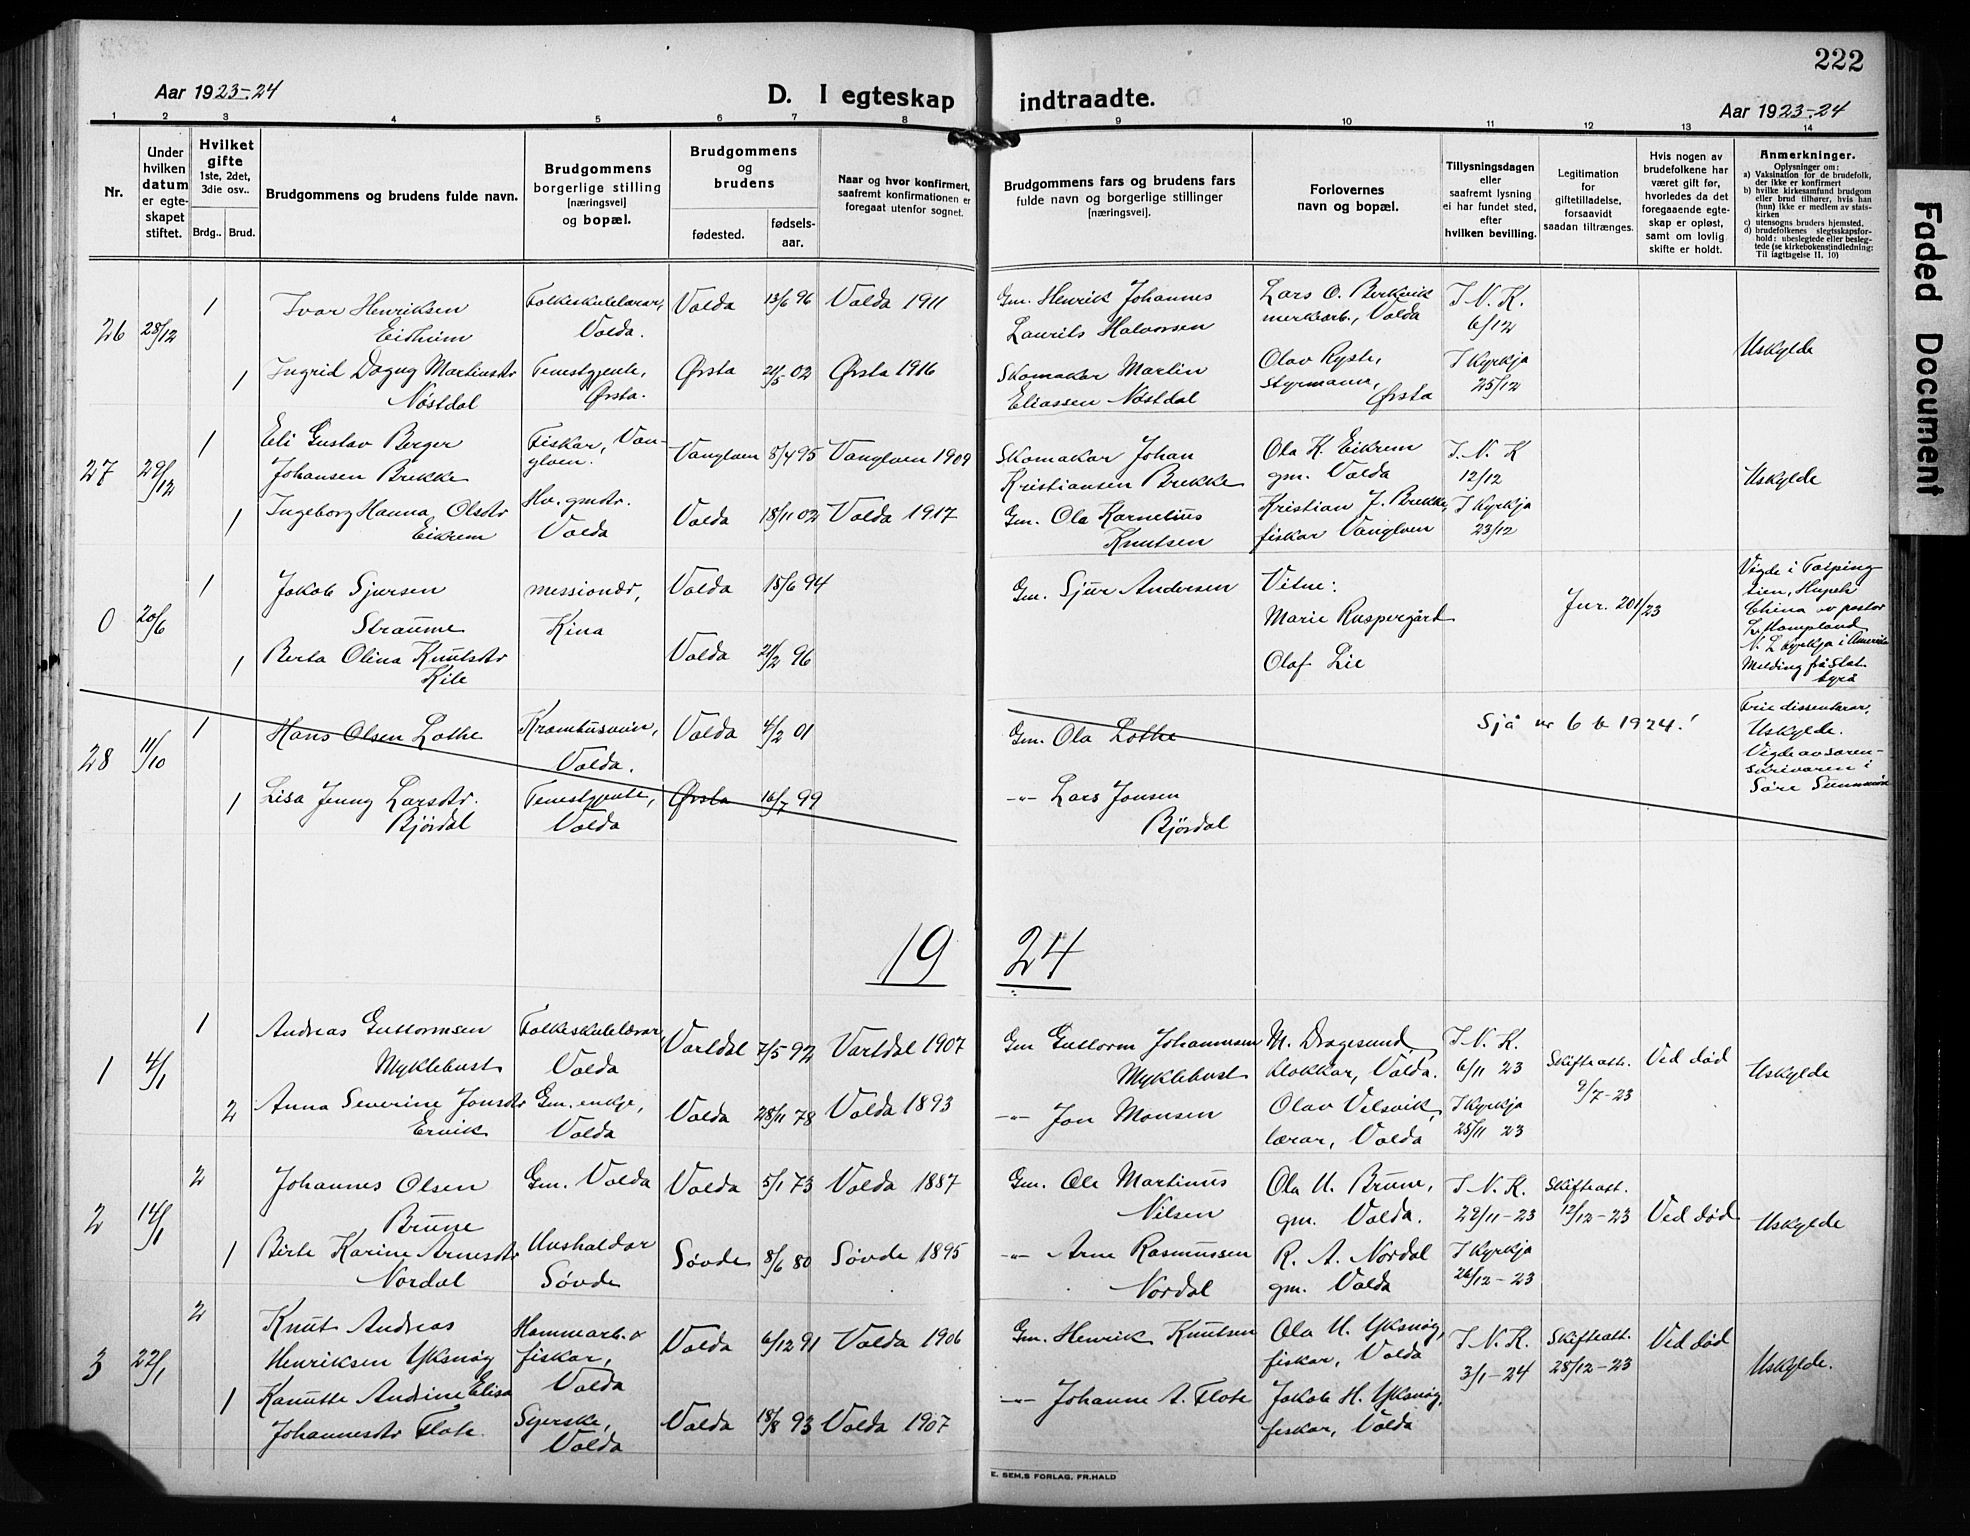 222
Aar 1923-24
D. I egteskap indtraadte.
Aar 1923-24
Faded Document
1 2 3 4 5 6 7 8 9 10 11 12 13 14
Nr.
Under hvilken datum er egteskapet stiftet.
Hvilket gifte 1ste, 2det, 3die osv..
Brdg.. Brud.
Brudgommens og brudens fulde navn.
Brudgommens borgerlige stilling [næringsvei] og bopæl.
Brudgommens og brudens
fødested.
fødselsaar.
Naar og hvor konfirmert, saafremt konfirmationen er foregaat utenfor sognet.
Brudgommens fars og brudens fars fulde navn og borgerlige stillinger [næringsvei].
Forlovernes navn og bopæl.
Tillysningsdagen eller saafremt lysning ei har fundet sted, efter hvilken bevilling.
Legitimation for giftetilladelse, forsaavidt saadan tiltrænges.
Hvis nogen av brudefolkene har været gift før, hvorledes da det foregaaende egteskap er opløst, samt om lovlig skifte er holdt.
Anmerkninger.
Oplysninger om:
a) Vaksination for de brudefolk, der ikke er konfirmert
b) hvilke kirkesamfund brudgom eller brud tilhører, hvis han (hun) ikke er medlem av statskirken
c) utensogns bruders hjemsted.
d) brudefolkenes slegtsskapsforhold: ubeslegtede eller beslegtede (se kirkebokens indledning: Til iagttagelse II. 10)
26 28/12 1 Ivar Henriksen Eidheim Folkeskulelærar, Volda. Volda 13/6 96 Volda 1911 Gm. Henrik Johannes Laurits Halvorsen Lars O. Berkvik merkearb., Volda I N. K. 6/12
1 Ingrid Dagny Martinsdtr Nøstdal Tenestgjente, Ørsta. Ørsta 21/5 02 Ørsta 1916 Skomakar Martin Eliassen Nøstdal Olav Ryste, styrmann, Ørsta I Kyrkja 25/12 Uskylde
27 29/12 1 Eli Gustav Berger Johansen Brekke Fiskar, Vanylven. Vanylven 8/4 95 Vanylven 1909 Skomakar Johan Kristiansen Brekke Ola K. Eikrem gm. Volda I. N. K 12/12 Uskylde
1 Ingeborg Hanna Olsdtr Eikrem Hv. gmdtr. Volda Volda 18/11 02 Volda 1917 Gm. Ola Kornelius Knutsen Kristian J. Brekke, fiskar Vanylven I Kyrkja 23/12
0 20/6 1 Jakob Sjursen Straume messionær, Kina Volda 15/6 94 Gm. Sjur Andersen Vitne: Marie Ruspergård Jur. 20 1/23
1 Berta Olina Knutsdtr Kile Volda 21/2 96 Olaf Lie
Vigde i Taipingtien, Hupeh China av pastor N. L Kyrkja i Amerika Melding frå Stat. byrå
28 11/10 1 Hans Olsen Lothe Krambusvein, Volda. Volda 4/2 01 Gm. Ola Lothe Sjå nr 6 b 1924!
1 Lisa Jenny Larsdtr. Bjørdal Tenestgjente, Volda Ørsta 16/7 99 -"- Lars Jonsen Bjørdal
Frie dissentarar, Uskylde. Vigde av sorenskrivaren i Søre Sunnmøre
19 24
1 4/1 1 Andreas Guttormsen Myklebust Folkeskulelærar, Volda Vartdal 7/5 92 Vartdal 1907 Gm Guttorm Johannessen Myklebust M. Dragesund klokkar, Volda. I N. K. 6/11 23 Skifteatt. 9/7-23 Ved død Uskylde
2 Anna Severine Jonsdtr Ervik Gm. enkje, Volda Volda 28/11 78 Volda 1893 -"- Jon Monsen Olav Velsvik, lærar, Volda I Kyrkja 25/11 23
2 14/1 2 Johannes Olsen Brune Gm. Volda Volda 5/1 73 Volda 1887 Gm. Ole Martinus Nilsen Ola U. Brune, gm. Volda. I N. K. 29/11-23 Skifteatt. 12/12-23 Ved død Uskylde
1 Birte Karine Arnesdtr Nordal Hushaldar Søvde Søvde 8/6 80 Søvde 1895 -"- Arne Rasmussen Nordal R. A. Nordal gm. Volda I Kyrkja 26/12-23
3 22/1 2 Knut Andreas Henriksen Yksnøy Hammarb. & fiskar, Volda Volda 6/12 91 Volda 1906 Gm. Henrik Knutsen Ola U. Yksnøy, fiskar, Volda I. N. K. 3/1-24 Skifteatt. 28/12-23 Ved død Uskylde.
1 Kanutte Andine Elisa Johannesdtr Flote. Syerske, Volda Volda 18/8 93 Volda 1907 -"- Johanne A. Flote Jakob H. Yksnøy, fiskar, Volda
E. SEM,S FORLAG, FR.HALD